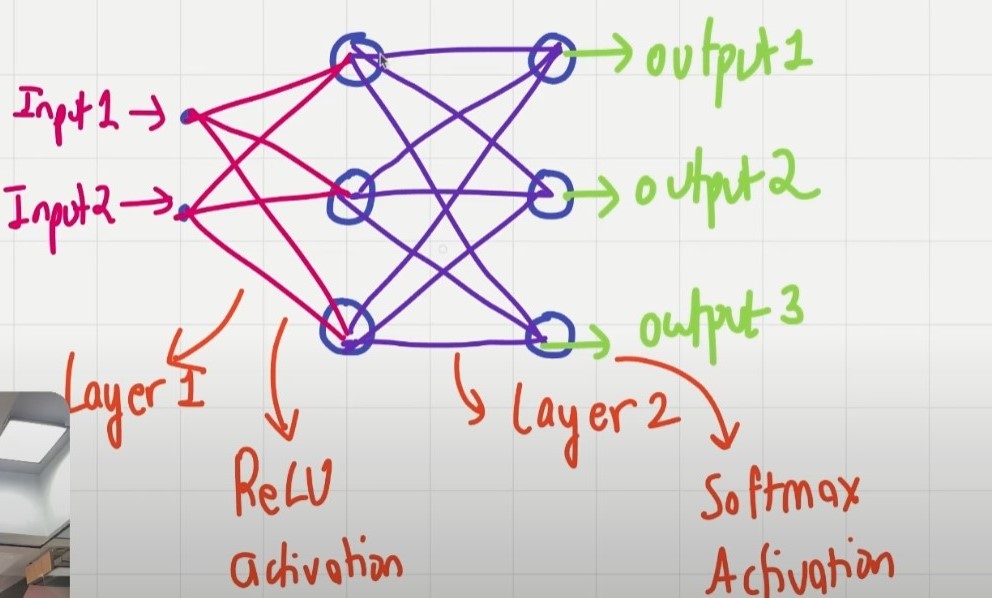 Input 1
Input 2
output 1
output 2
output 3
Layer 1
ReLU
activation
Layer 2
Softmax
Activation